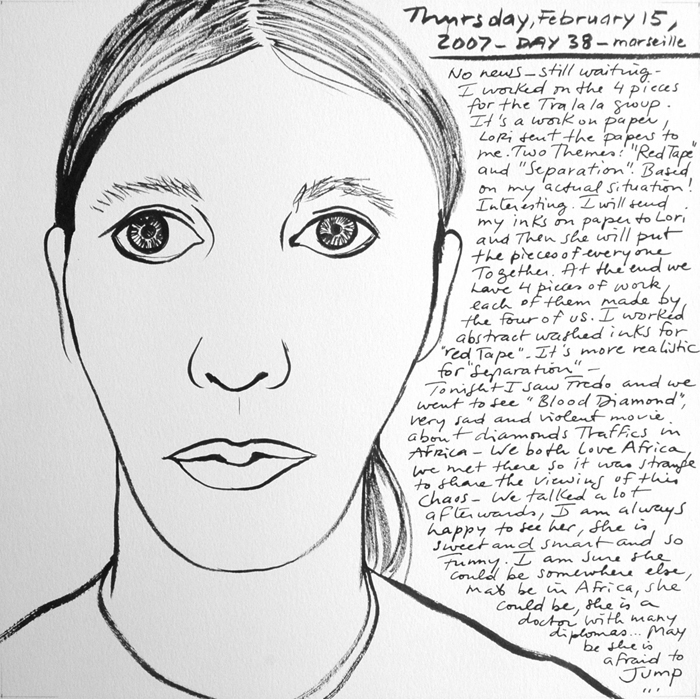 Thursday, February 15,
2007 - DAY 38 - marseille
No news - still waiting -
I worked on the 4 pieces
for the Tralala group.
It's a work on paper,
Lori sent the papers to
me. Two Themes: "Red Tape"
and "Separation". Based
on my actual situation!
Interesting. I will send
my inks on paper to Lori
and Then she will put
the pieces of everyone
Together. At the end we
have 4 pieces of work,
each of them made by
the four of us. I worked
abstract washed inks for
"red Tape" - It's more realistic
for "separation" -
Tonight I saw Fredo and we
went to see "Blood Diamond",
very sad and violent movie
about diamonds Traffics in
Africa - We both love Africa,
we met there so it was strange
to share the viewing of this
Chaos - We talked a lot
afterwards, I am always
happy to see her, she is
sweet and smart and so
funny. I am sure she
could be somewhere else,
may be in Africa, she
could be, she is a
doctor with many
diplomas... May
be she is
afraid to
Jump
...